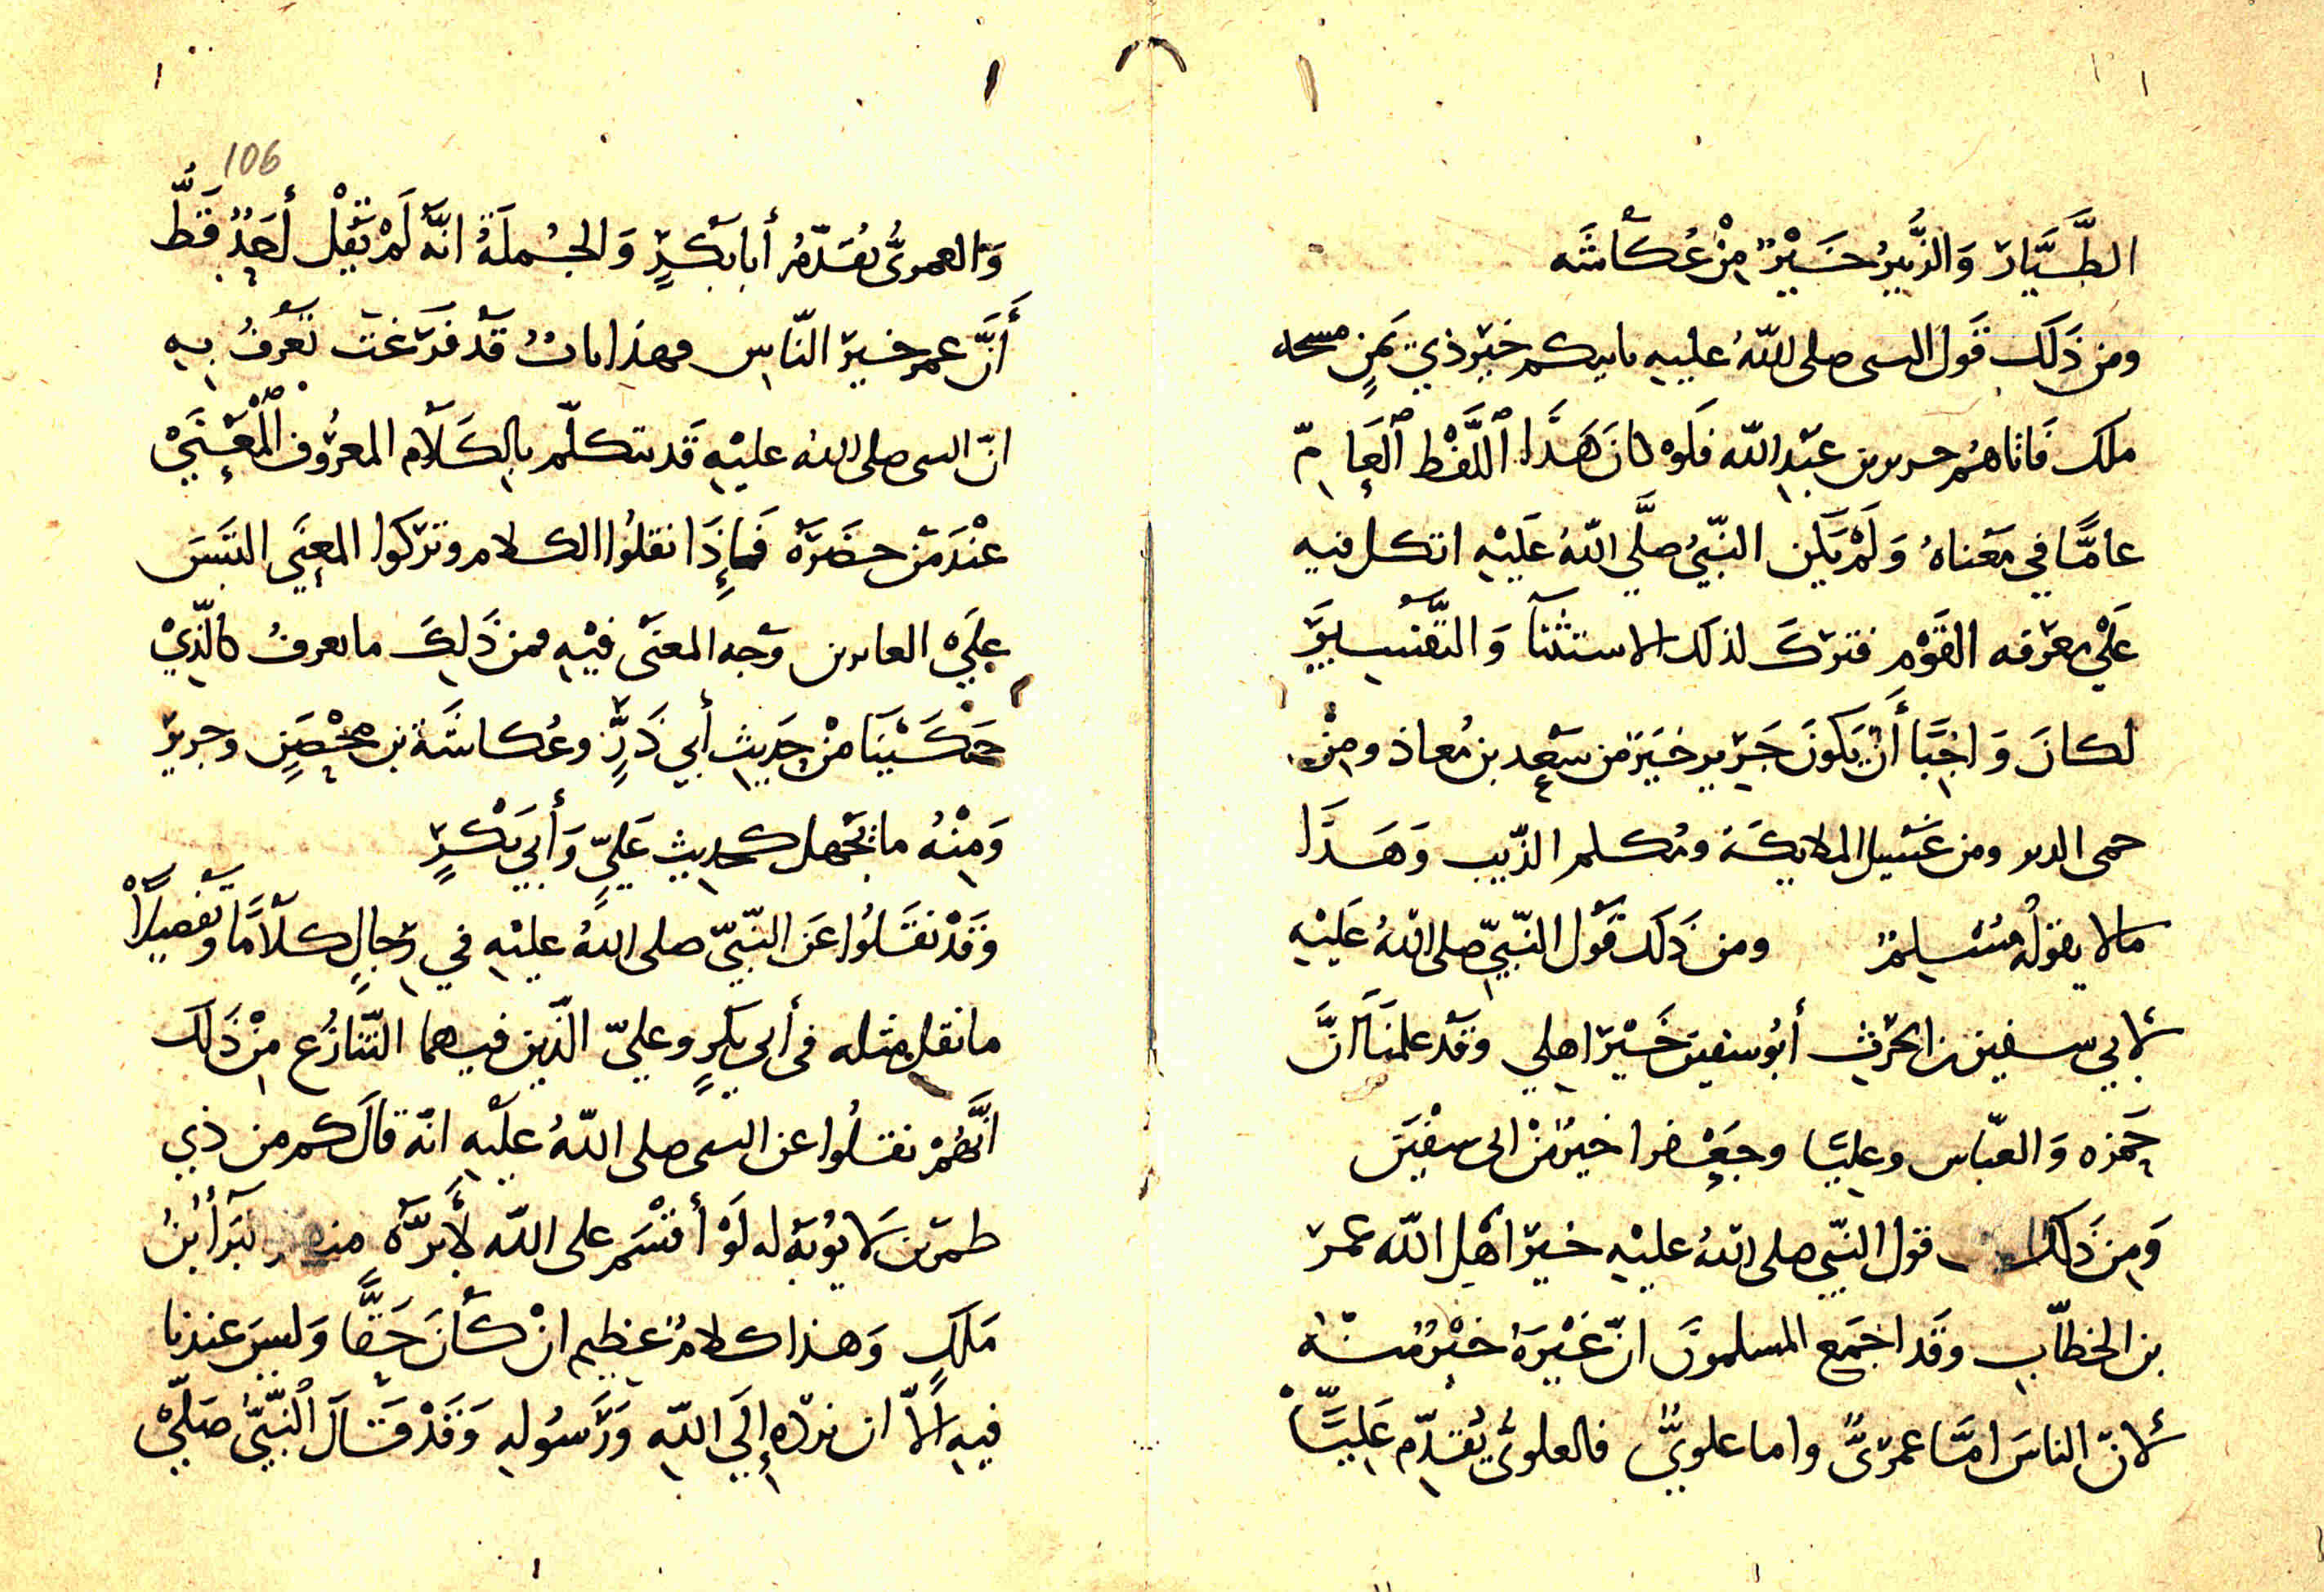 الطَّيَّارِ وَالزُّبَيْرُ خَيْرٌ مِنْ عُكَّاشَه
ومن ذَلَك قَول النبى صلى اللّهُ عليه ياتيكم خيْر ذي يَمَنٍ مسحه
ملك فَاتاهُم جرير بن عبْدِ اللّه فلَوْ كانَ هَذَا اللَّفْظ العَامّ
عامًّا في مَعْناهُ وَلَمْ يَكن النّبيُ صلَّى اللّهُ عَلَيْهِ اتكل فيه
عَلَي معْرَفه القَوْم فترَكَ لذلك الاستثنآ وَالتَّفْسيرَ
لكانَ وَاجِبًا أَنْ يَكونَ جَرير خيَرَ من سَعْدِ بن مُعاذ ومِنْ
حمى الدبر ومن غَسيل الملايكَة ومُكلم الذّيب وَهَذَا
ما لا يقولُه مُسْلِمٌ ومن ذَلَك قَول النّبيّ صلى اللّهُ عَليْهِ
لأبي سفين بن الحرَث أَبُو سفين خَيْرَ اهلي وقَد علمنَا انَّ
حَمزه وَالعبّاس وعليًا وجَعْفرا خيرٌ منْ ابى سفْينَ
وَمِن ذَلك قول النّبي صلى اللّهُ عليْهِ خيرَ اهْلِ اللّه عمرَ
بن الخطّابِ وقَد اجمَع المسلمونَ انّ غَيْرَهُ خيْرٌ منْهُ
لأنّ الناسَ امَّا عمرَىٌّ واما علويٌّ فالعلوىُّ يُقدّم عَليًّا
106
وَالعمرىُّ يُقدّمُ أبا بَكْرٍ وَالجُملَةُ انّهُ لَمْ يَقُلْ أَحَدٌ قَطُّ
أَنَّ عمر خيرَ النّاسِ وهذا بابٌ قَدْ فرَغتَ تَعْرفُ بهِ
انّ النبى صلى اللهُ عليْهِ قَد يتكلّم بالِكَلَامِ المعرُوف المْعْنَي
عنْدَ مَنْ حضَرَهُ فَإِذَا نقلُوا الكلام وتَركوا المعنَي التبَسَ
علَي العابرين وَجه المعنَى فيْهِ فمن ذَلِكَ ما يعرفُ كالّذِيْ
حَكَيْنَا مِنْ حَدِيثِ أَبي ذَرٍّ وعُكاشَة بن مِحْصَنٍ وجريرَ
وَمِنْهُ ما يَجْهل كحديثِ عَليٍّ وَأَبي بَكْرٍ
وَقَدْ نقَلُوا عَن النّبيّ صلى اللهُ عليْهِ في رجالٍ كلَامًا وتَفصيلاً
ما نقل مثله فى أَبى بكرٍ وعليّ الّذَين فيهما التّنازُع مِنْ ذَلَك
انَّهُمْ نقلُوا عن النبى صلى اللّهُ علَيْهِ انّه قالَ كم من ذي
طمرَين لَا يُوبَهُ له لَوْ أَقْسَم على اللّه لأَبرّهُ منهم البَرَآ بنُ
مَلكٍ وَهذا كلامٌ عَظيم انْ كَانَ حَقًّا وَليسَ عندنا
فيهِ الّا ان نردّه إلَي اللّهِ وَرَسُولِهِ وَقَدْ قَالَ النّبيُّ صَلّيْ